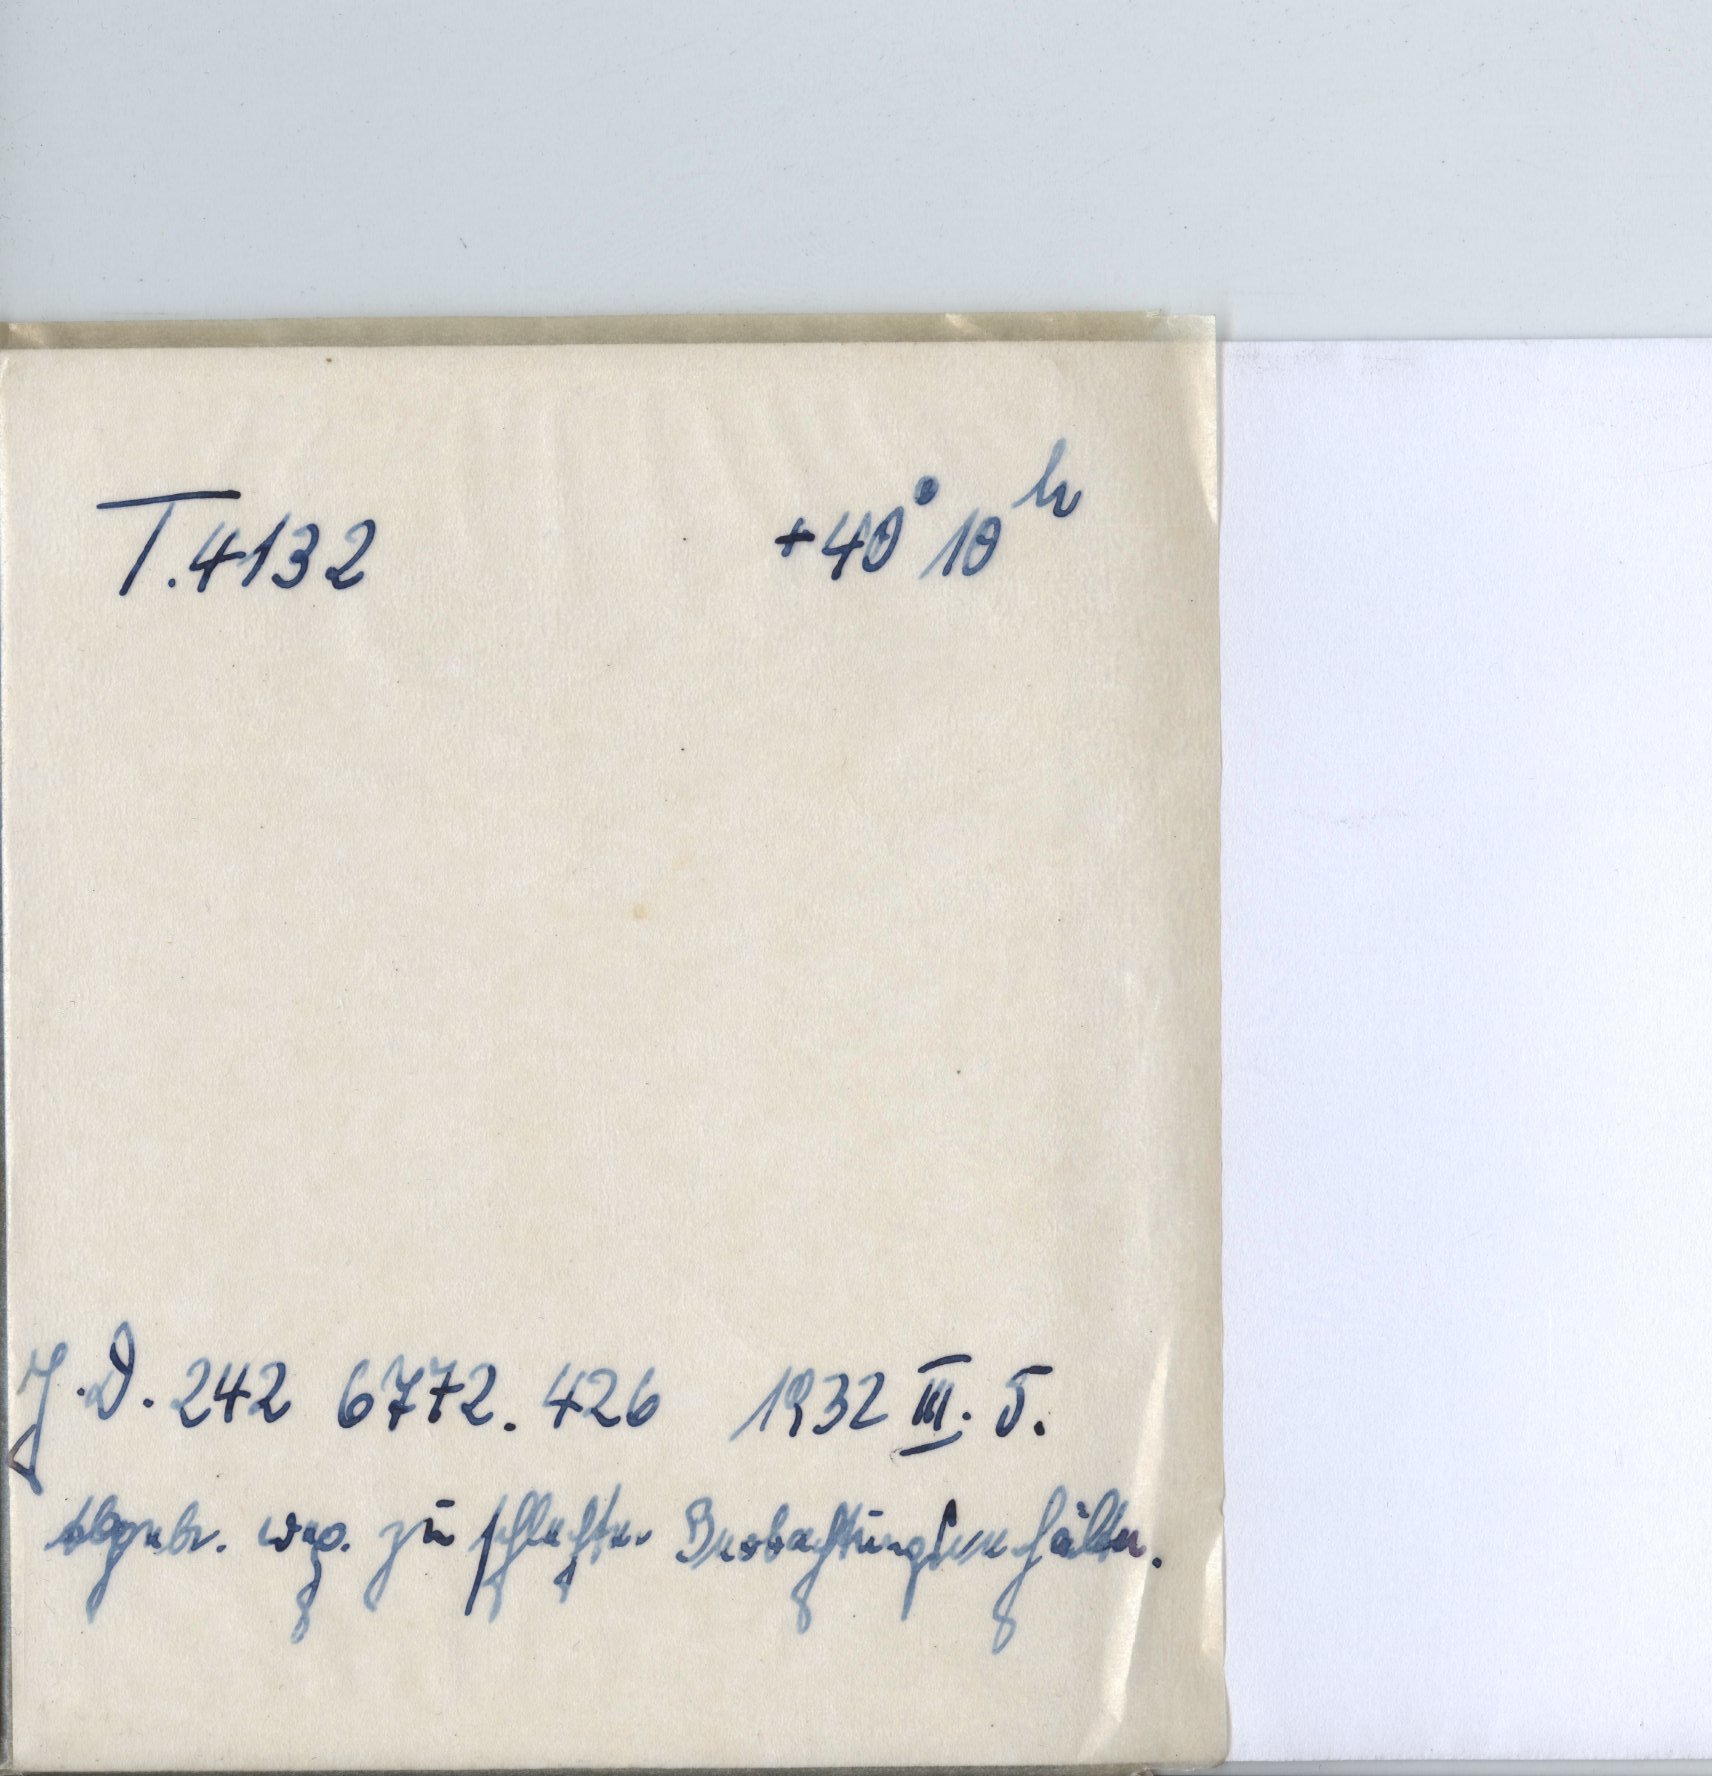 T.4132 +40° 10h
J.D. 242 6772.426 1932 III. 5.
abgebr. weg. zu schlechter Beobachtungsverhältn.